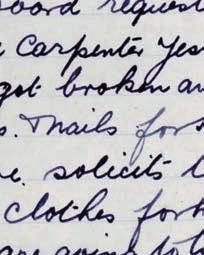 oard request
Carpenter yes
got broken an
s. Tnails for
e. solicits
clothes for
are going to